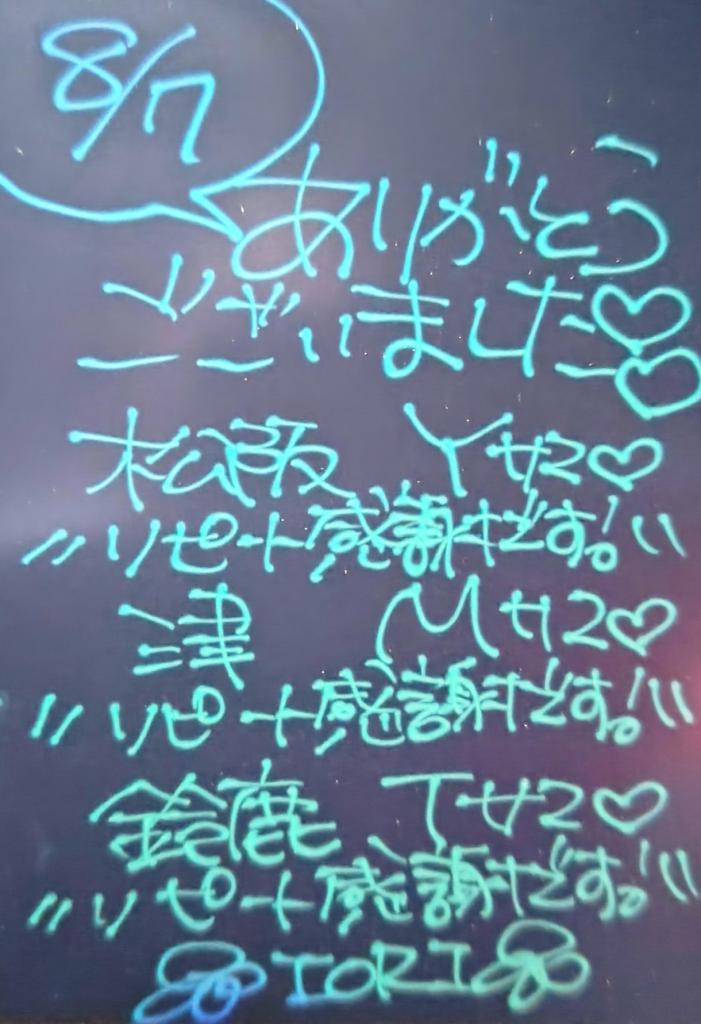 8/7
ありがとう
ございました♡♡
松阪 Yサマ♡
〃リピート感謝です。!〃
津 Mサマ♡
〃リピート感謝です。!〃
鈴鹿 Tサマ♡
〃リピート感謝です。!〃
IORI